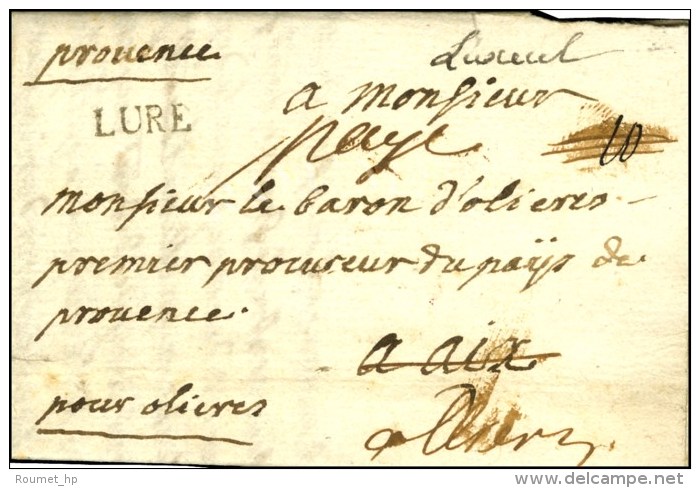 provence
Luxeul
LURE
a monsieur
paye
10
monsieur le baron d'olieres
premier procureur du païs de
provence.
a aix
pour olieres
Roumet_hp
www.delcampe.net